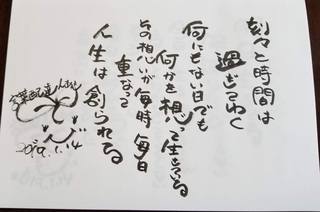 刻々と時間は
過ぎてゆく
何にもない日でも
何かを想って生きている
その想いが毎時毎日
重なって
人生は創られてる
言葉配達人